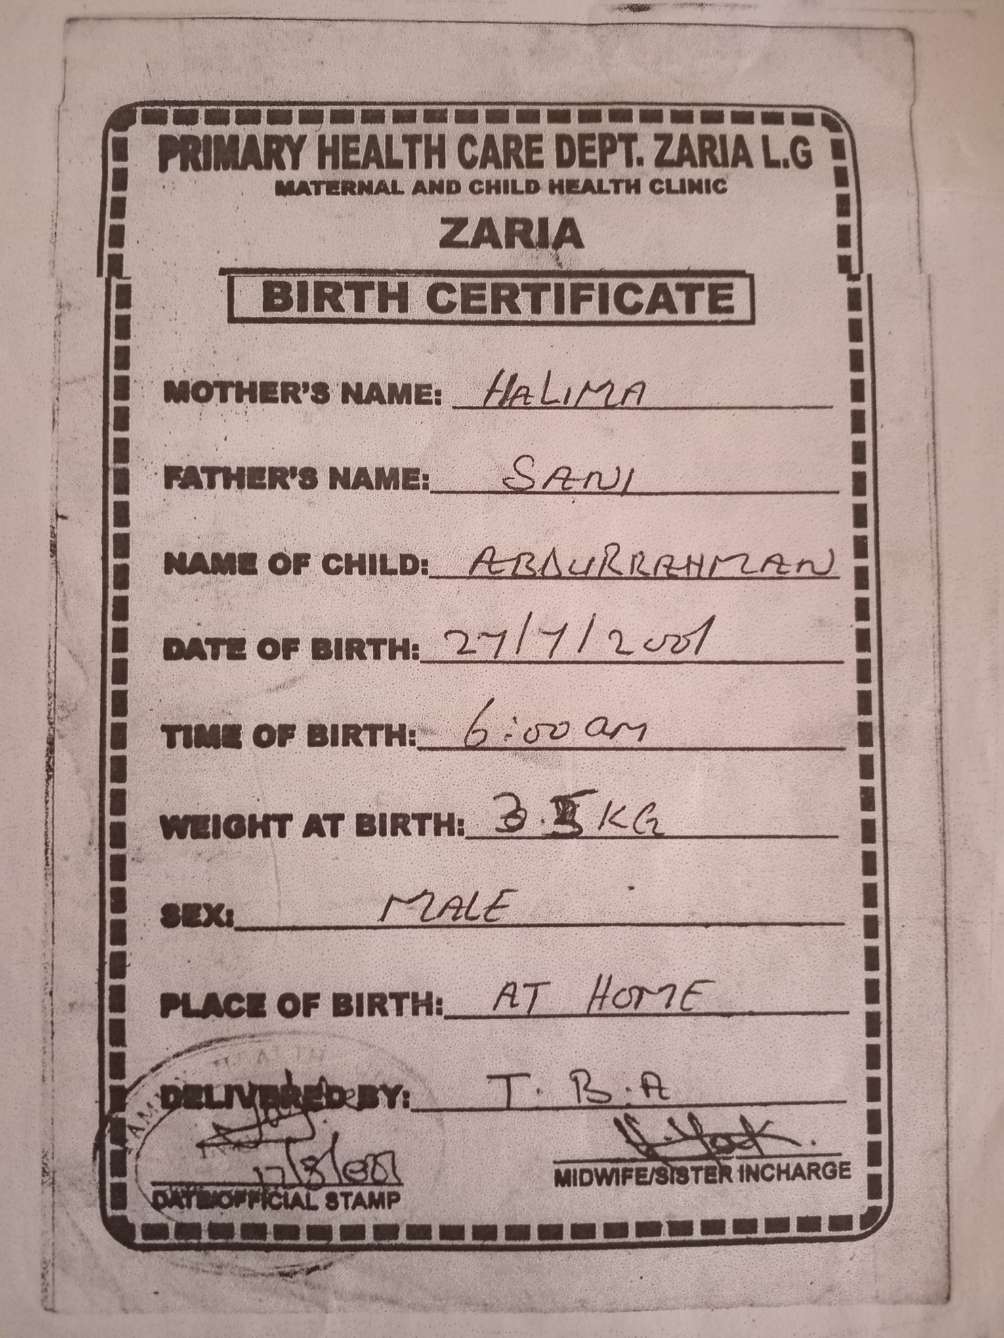 PRIMARY HEALTH CARE DEPT. ZARIA L.G
MATERNAL AND CHILD HEALTH CLINIC
ZARIA
BIRTH CERTIFICATE
MOTHER'S NAME: HALIMA
FATHER'S NAME: SANI
NAME OF CHILD: ABDURRAHMAN
DATE OF BIRTH: 27/7/2001
TIME OF BIRTH: 6:00 am
WEIGHT AT BIRTH: KG
SEX: MALE
PLACE OF BIRTH: AT HOME
DELIVERED BY: T.B.A
MIDWIFE/SISTER INCHARGE
DATE/OFFICIAL STAMP